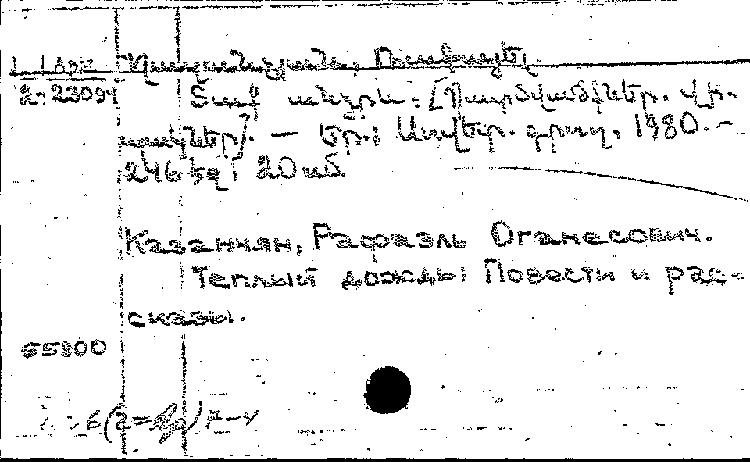 1 Арм
2-23094
Ղազանչյան, Ռաֆայել.
Տաք անձրև: [Պատմվածքներ. վի-
պակներ]. — Եր.: Սովետ. գրող, 1980.—
246 էջ; 20 սմ
Казанчян, Рафаэль Оганесович.
Теплый дождь: Повести и рас-
сказы.
55800